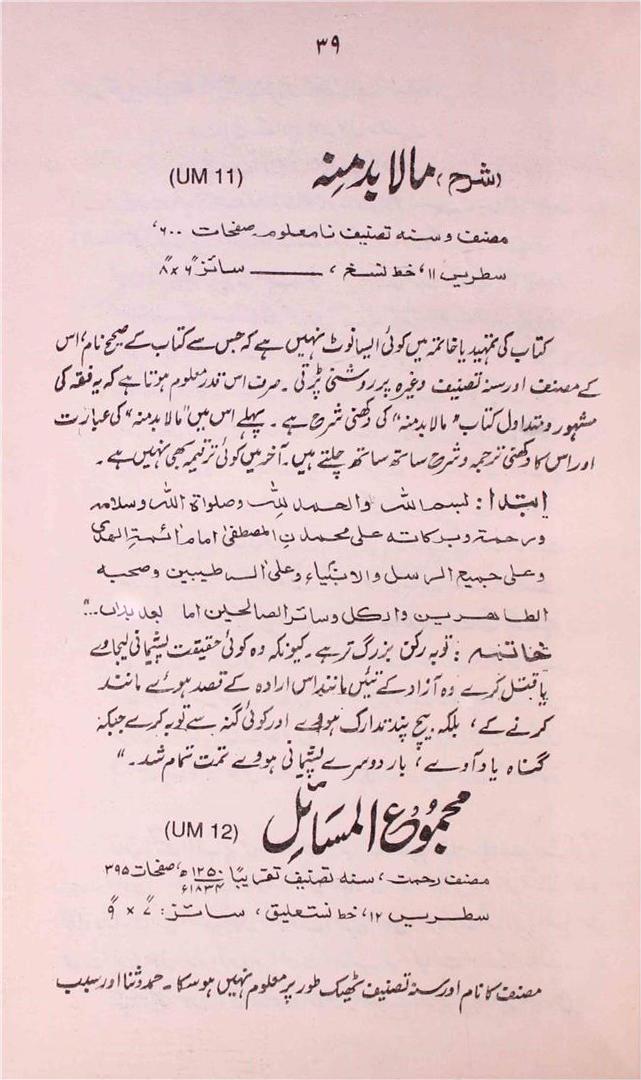 ۳۹
(شرح) مالابدمنہ (UM 11)
مصنف و سنہ تصنیف نامعلوم۔ صفحات ۶۰۰،
سطریں ۱۱، خط نسخ، ـــــــ سائز ۶ً × ۸ً
کتاب کی تمہید یا خاتمہ میں کوئی ایسا نوٹ نہیں ہے کہ جس سے کتاب کے صحیح نام، اس
کے مصنف اور سنہ تصنیف وغیرہ پر روشنی پڑتی۔ صرف اس قدر معلوم ہوتا ہے کہ یہ فقہ کی
مشہور و متداول کتاب "مالابدمنہ" کی دکھنی شرح ہے۔ پہلے اس میں "مالابدمنہ" کی عبارت
اور اس کا دکھنی ترجمہ و شرح ساتھ ساتھ چلتے ہیں۔ آخر میں کوئی ترقیمہ بھی نہیں ہے۔
ابتدا: بسم اللہ والحمد للہ وصلواۃ اللہ وسلامہ
ورحمتہ وبرکاتہ علی محمدنِ المصطفیٰ امام ائمۃ الھدی
وعلی جمیع الرسل والانبیاء وعلی الہ طیبین وصحبہ
الطاہرین وال کل وسائر الصالحین اما بعد بداں..."
خاتمہ: توبہ رکن بزرگ تر ہے۔ کیونکہ وہ کوئی حقیقت پشیمانی لیجاوے
یا قبتل کرے وہ آزاد کے تئیں مانند اس ارادہ کے قصد ہوئے مانند
کرنے کے، بلکہ بیچ پند تدارک ہووے اور کوئی گنہ سے توبہ کرے جبکہ
گناہ یاد آوے، بار دوسرے پشیمانی ہووے تمت تمام شد۔"
مجموع المسائل (UM 12)
مصنف رحمت، سنہ تصنیف تقریباً ۱۲۵۰ھ/۱۸۳۴ء، صفحات ۳۹۵
سطریں ۱۲، خط نستعلیق، سائز: ۷ً × ۹ً
مصنف کا نام اور سنہ تصنیف ٹھیک طور پر معلوم نہیں ہو سکا۔ حمد و ثنا اور سبب